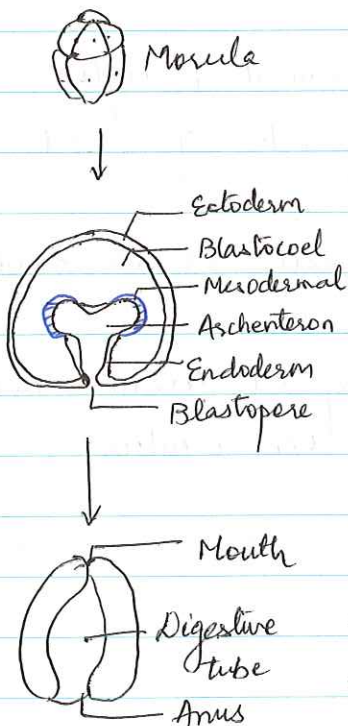 Morula
Ectoderm
Blastocoel
Mesodermal
Archenteron
Endoderm
Blastopore
Mouth
Digestive
tube
Anus